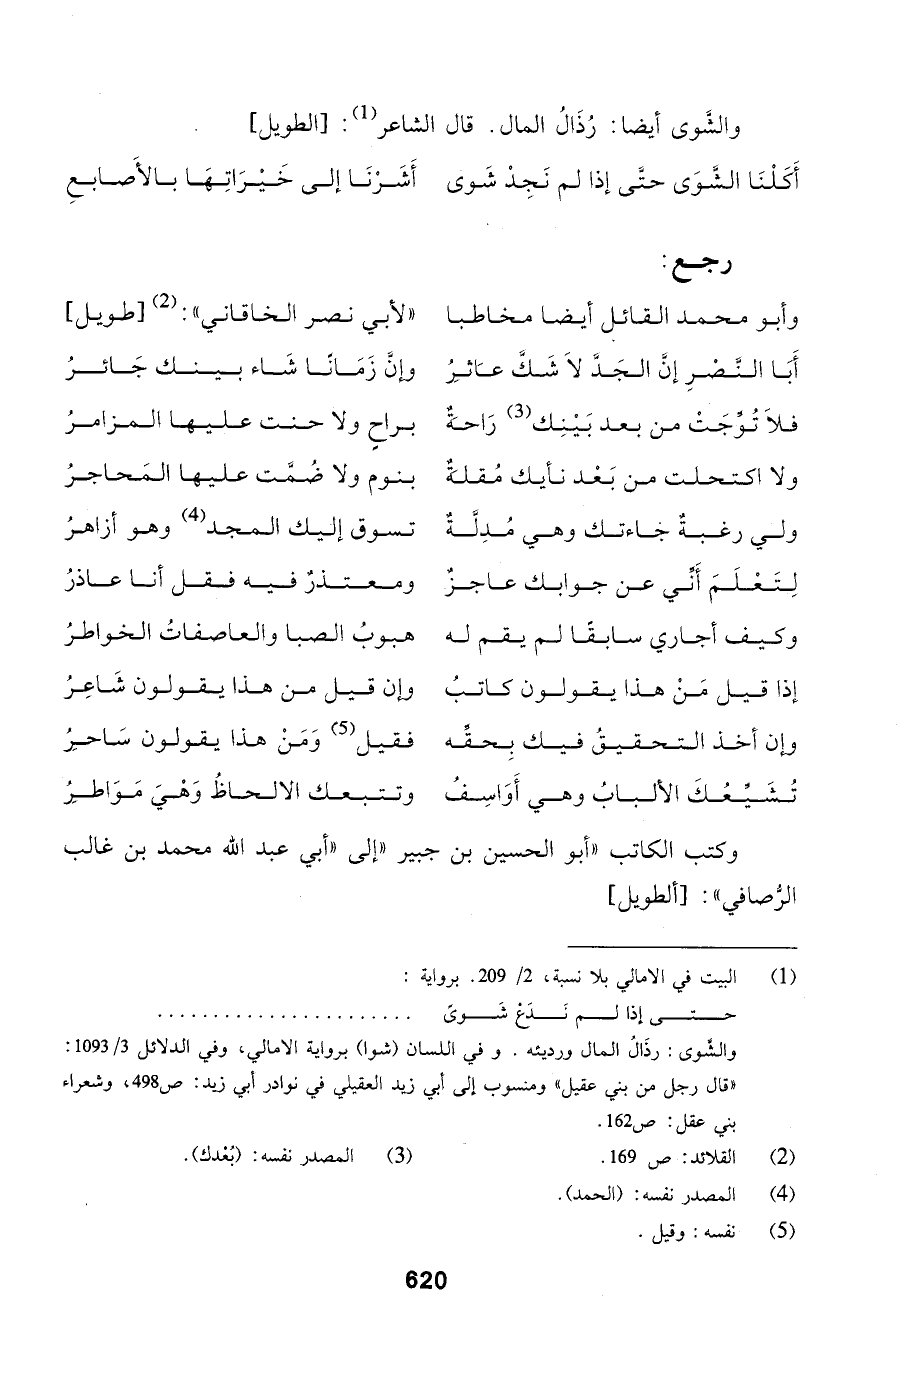 والشَّوى أيضا: رُذَالُ المال. قال الشاعر(1): [الطويل]
أَكَلْنَا الشَّوَى حتَّى إذا لم نَجِدْ شَوى أَشَرْنَا إلى خَيْرَاتِهَا بالأصابع
رجع:
وأبو محمد القائل أيضا مخاطبا «لأبي نصر الخاقاني»:(2) [طويل]
أبا النَّضْرِ إنَّ الجَدَّ لاَ شَكَّ عاثرُ وإنَّ زَمَانًا شَاءَ بينك جَائرُ
فلاَ تُوِّجَتْ من بعد بُيْنِكَ(3) رَاحةٌ براح ولا حنت عليها المزامرُ
ولا اكتحلت من بَعْد نأيك مُقلةٌ بنوم ولا ضُمَّت عليها المَحاجرُ
ولي رغبةٌ جاءتك وهي مُدِلَّةٌ تسوق إليك المجد(4) وهو أزاهرُ
لِتَعْلَمَ أنِّي عن جوابك عاجزٌ ومعتذرٌ فيه فقل أنا عاذرُ
وكيف أجاري سابقا لم يقم له هبوبُ الصبا والعاصفات الخواطرُ
إذا قيل مَنْ هذا يقولون كاتبٌ وإن قيل من هذا يقولون شاعرُ
وإن أخذ التحقيقُ فيك بحقّه فقيل(5) وَمَنْ هذا يقولون سَاحرُ
تُشَيِّعُكَ الألبابُ وهي أوَاسفُ وتتبعك الألحاظُ وَهْيَ مَوَاطِرُ
وكتب الكاتب «أبو الحسين بن جبير «إلى «أبي عبد الله محمد بن غالب
الرُّصافي»: [ألطويل]
(1) البيت في الأمالي بلا نسبة، 2/ 209. برواية :
حتى إذا لم نَدَعْ شَوىً .......................
والشوى: رذَالُ المال ورديئه . و في اللسان (شوا) برواية الأمالي، وفي اللآلئ 3/ 1093:
«قال رجل من بني عقيل» ومنسوب إلى أبي زيد العقيلي في نوادر أبي زيد: ص498، وشعراء
بني عقل: ص162.
(2) القلائد: ص 169. (3) المصدر نفسه: (بُعْدك).
(4) المصدر نفسه: (الحمد).
(5) نفسه: وقيل .
620